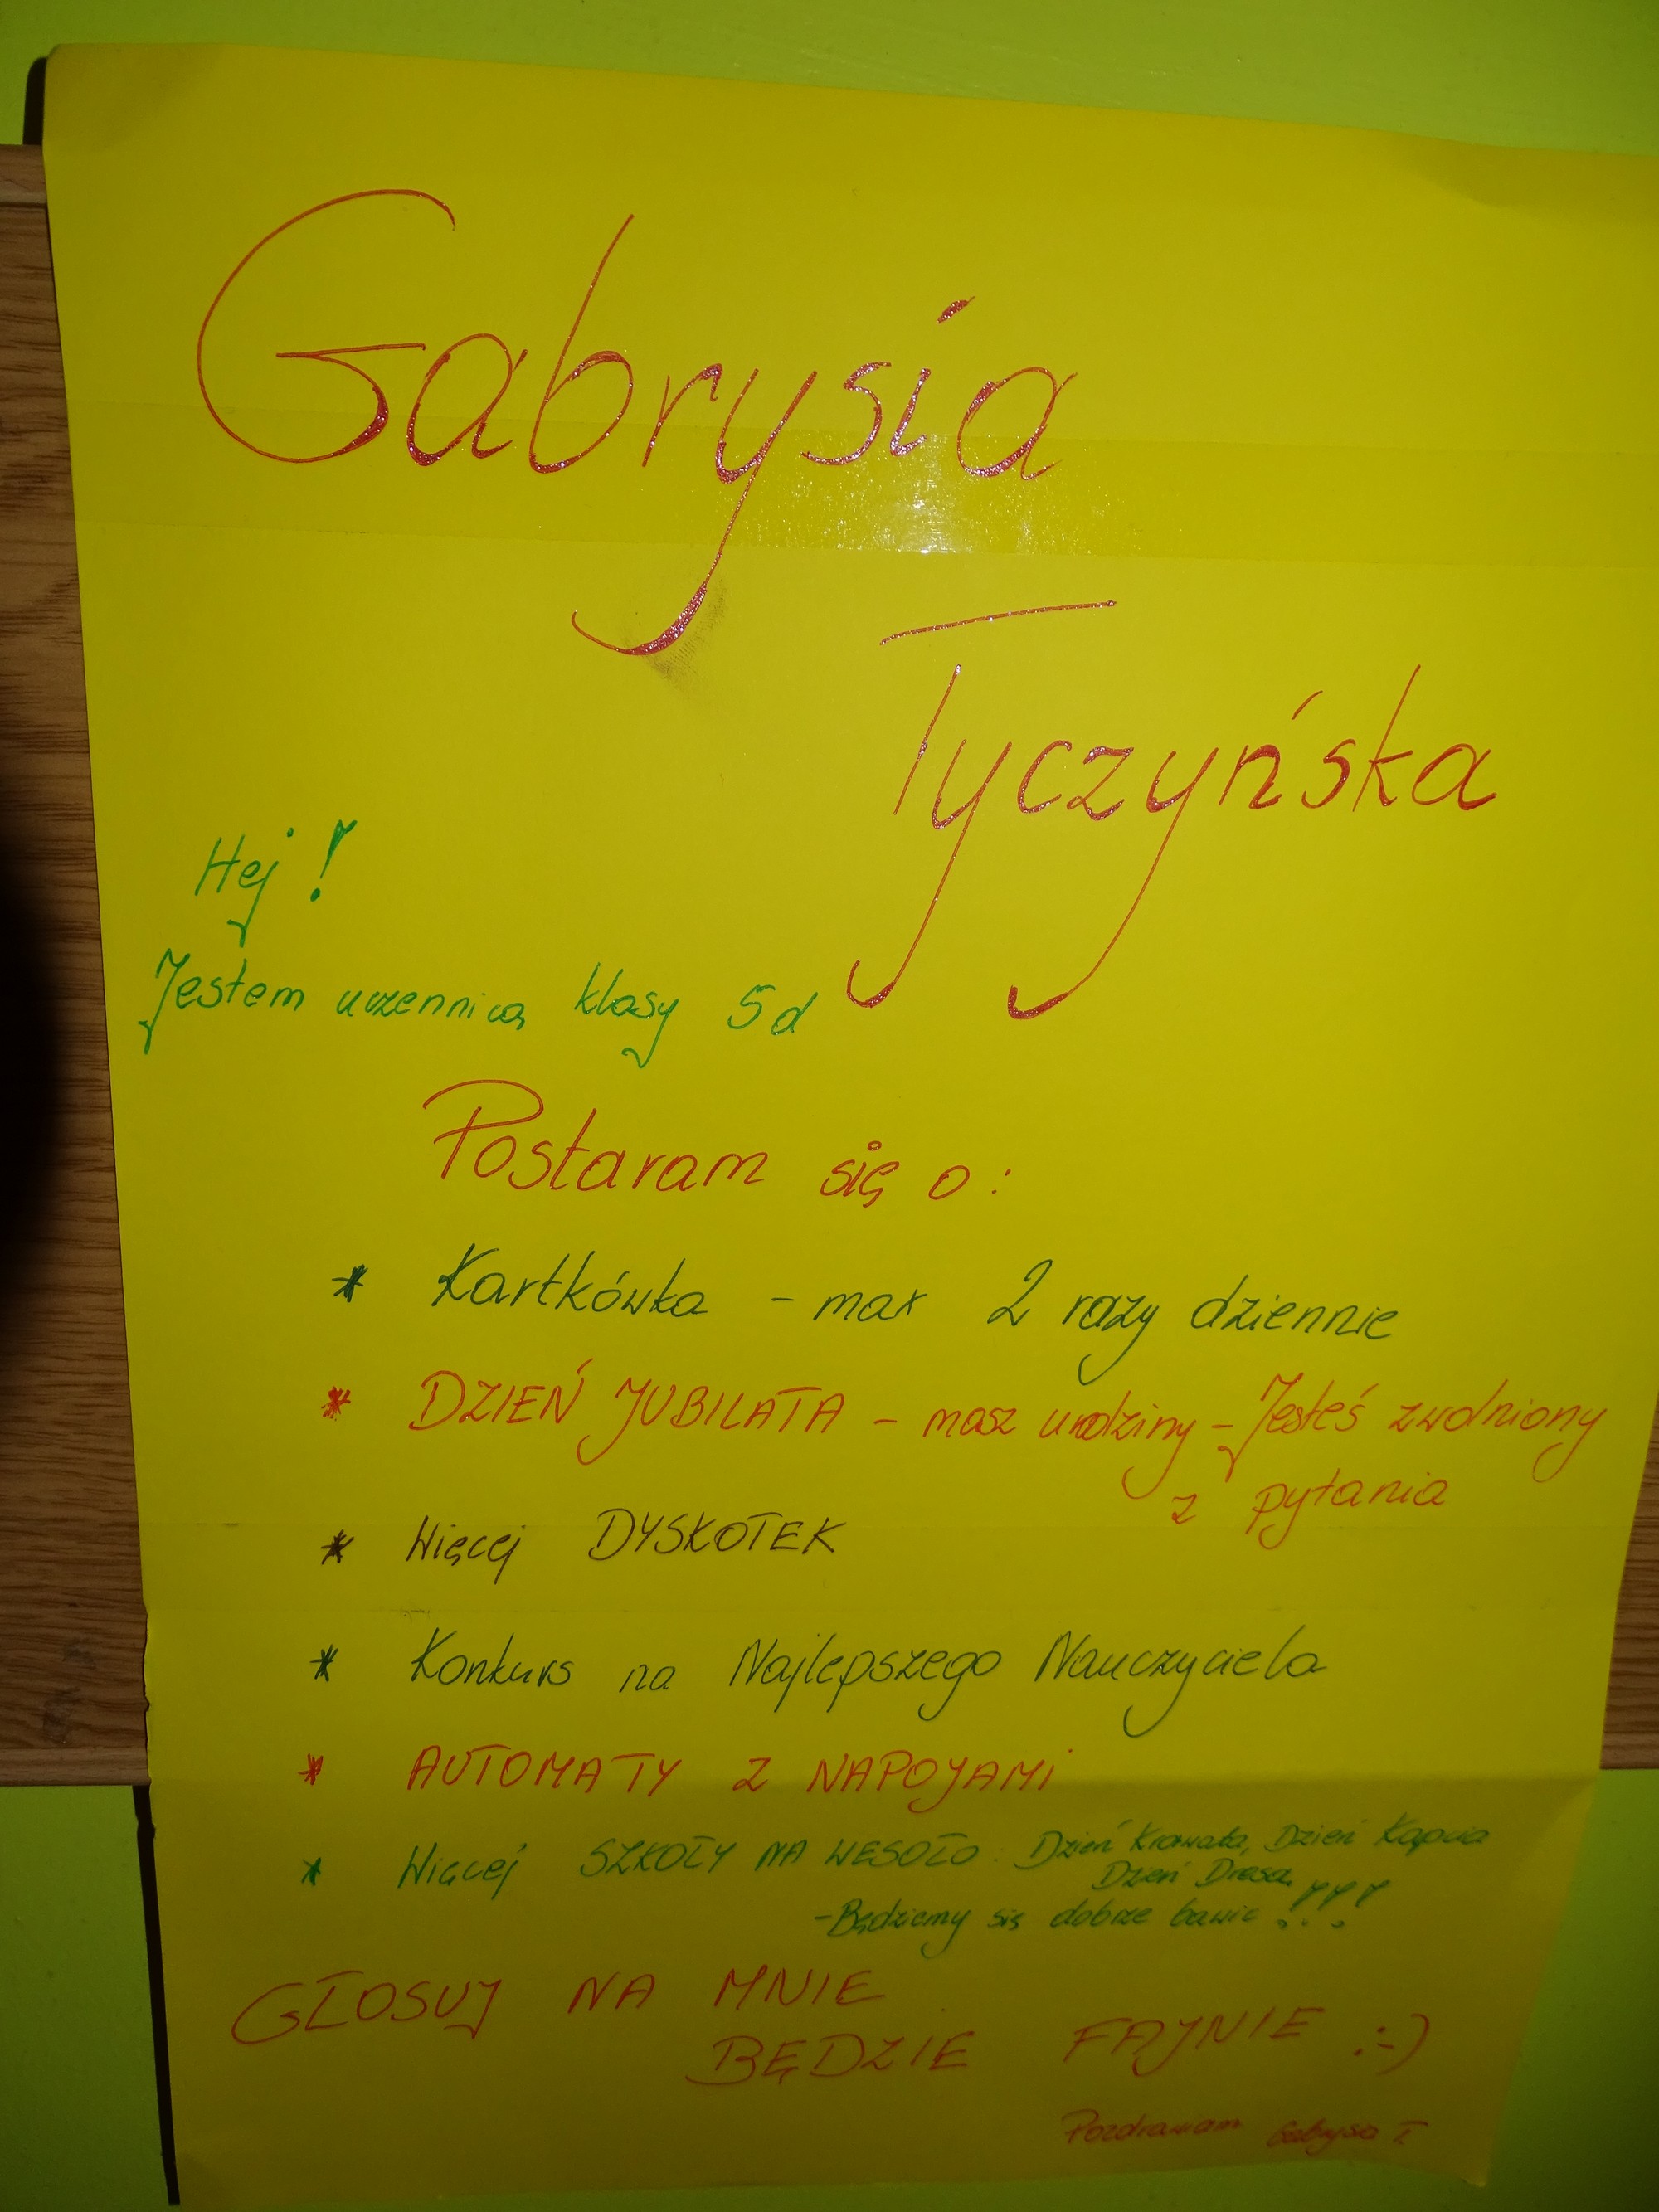 Gabrysia
Tyczyńska
Hej!
Jestem uczennicą klasy 5d
Postaram się o:
* Kartkówka - max 2 razy dziennie
* DZIEŃ JUBILATA - masz urodziny - Jesteś zwolniony
z pytania
* Więcej DYSKOTEK
* Konkurs na Najlepszego Nauczyciela
* AUTOMATY Z NAPOJAMI
* Więcej SZKOŁY NA WESOŁO: Dzień Krawata, Dzień Kapcia
Dzień Dresa,
- Będziemy się dobrze bawić !!!
GŁOSUJ NA MNIE
BĘDZIE FAJNIE :-)
Pozdrawiam Gabrysia T.